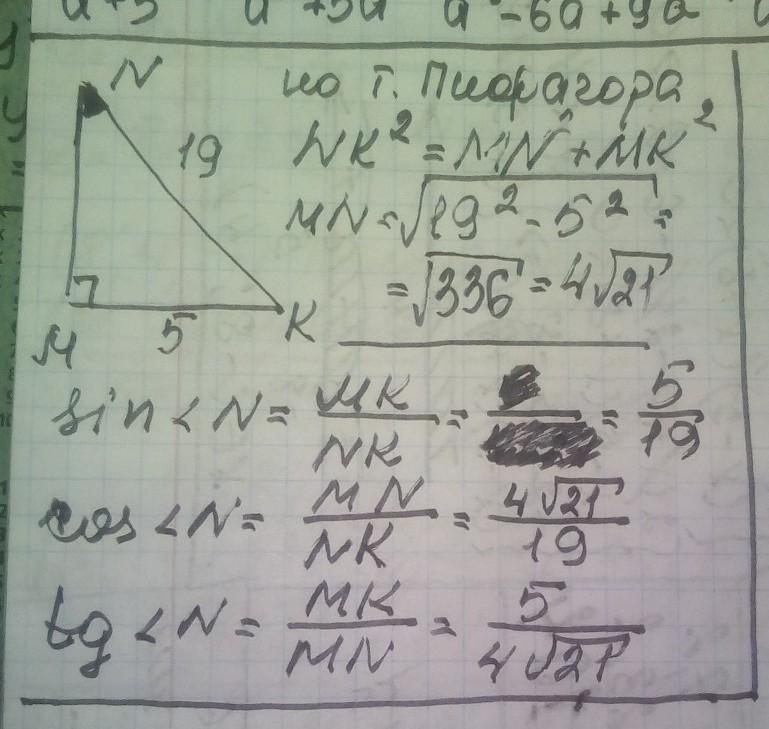 a+3 a +3a a -6a+9a
N
по т. Пифагора
19
NK² = MN² + MK²
MN = √19² - 5² =
= √336 = 4√21
M 5 K
sin < N = MK/NK = 5/19
cos < N = MN/NK = 4√21/19
tg < N = MK/MN = 5/4√21